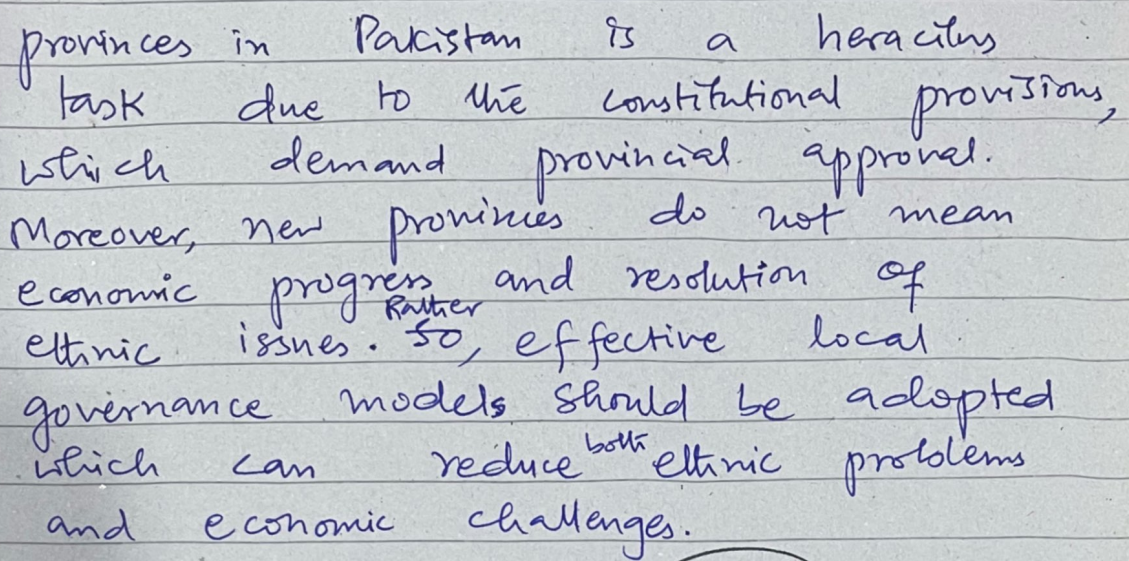 provinces in Pakistan is a heracilus
task due to the constitutional provisions,
which demand provincial approval.
Moreover, new provinces do not mean
economic progress and resolution of
Rather
ethnic issues. So, effective local
governance models should be adopted
which can reduce both ethnic problems
and economic challenges.